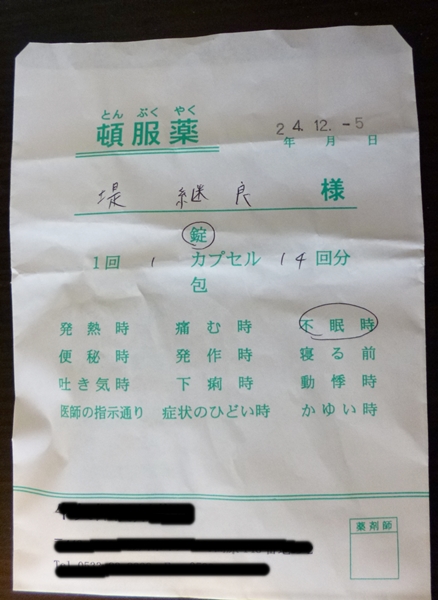 とん ぷく やく
頓服薬
24.12.-5
年 月 日
堤 継良 様
錠
1回 1 カプセル 14 回分
包
発熱時 痛む時 不眠時
便秘時 発作時 寝る前
吐き気時 下痢時 動悸時
医師の指示通り 症状のひどい時 かゆい時
薬剤師